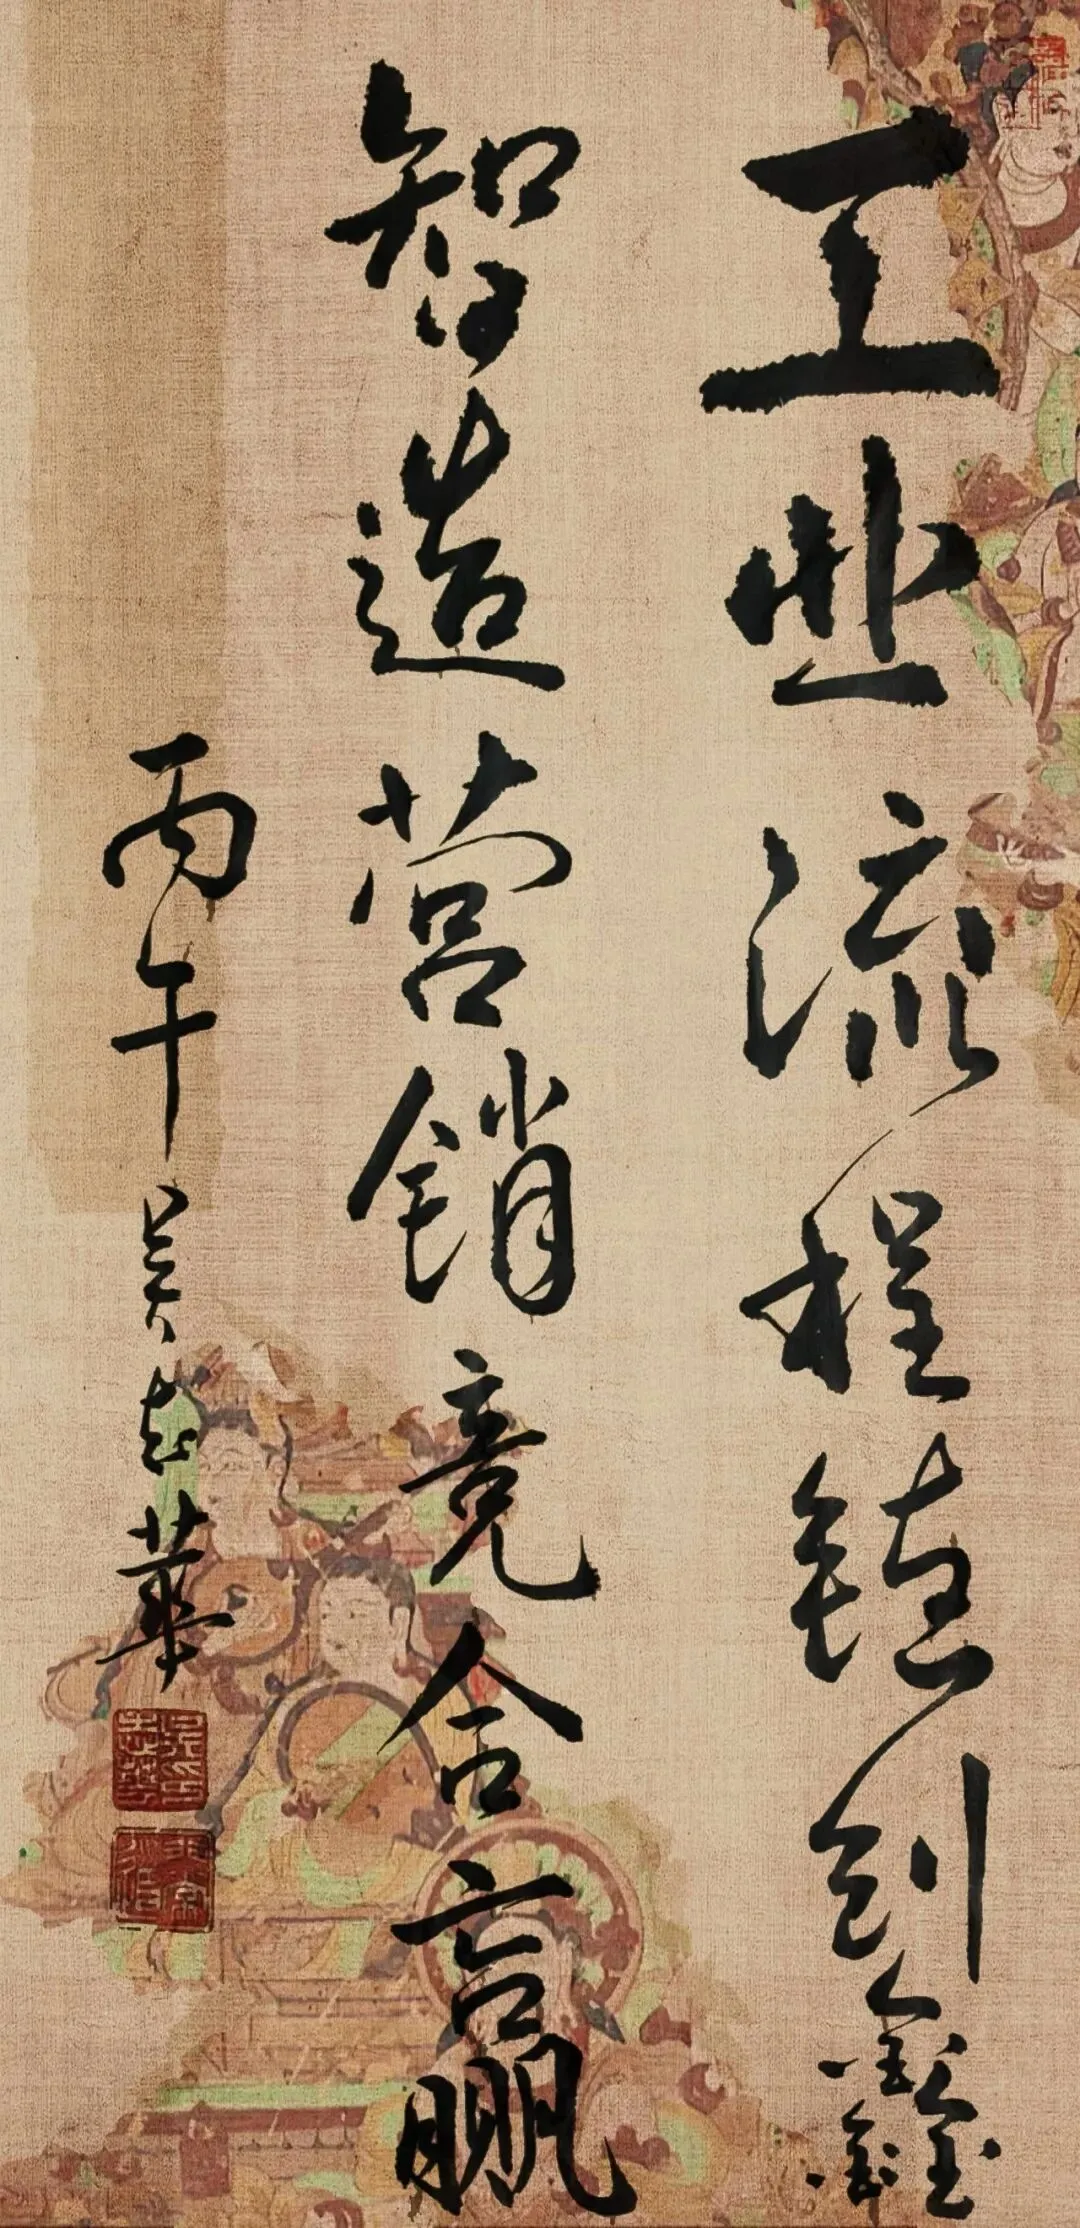 工业流程创鑫
智造营销竞合赢
丙午 吴志華